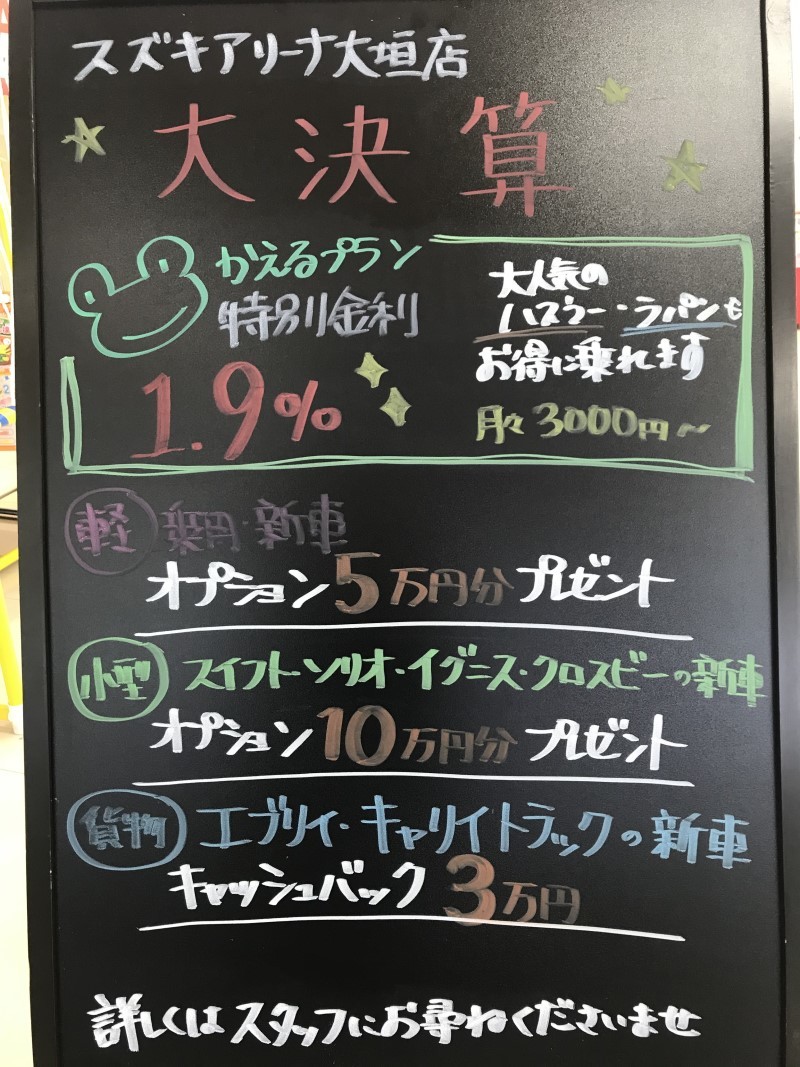 スズキアリーナ大垣店
大決算
かえるプラン
特別金利
1.9%
大人気の
ハスラー・ラパンも
お得に乗れます
月々3000円〜
軽 乗用・新車
オプション5万円分プレゼント
小型 スイフト・ソリオ・イグニス・クロスビーの新車
オプション10万円分プレゼント
貨物 エブリィ・キャリイトラックの新車
キャッシュバック3万円
詳しくはスタッフにお尋ねくださいませ